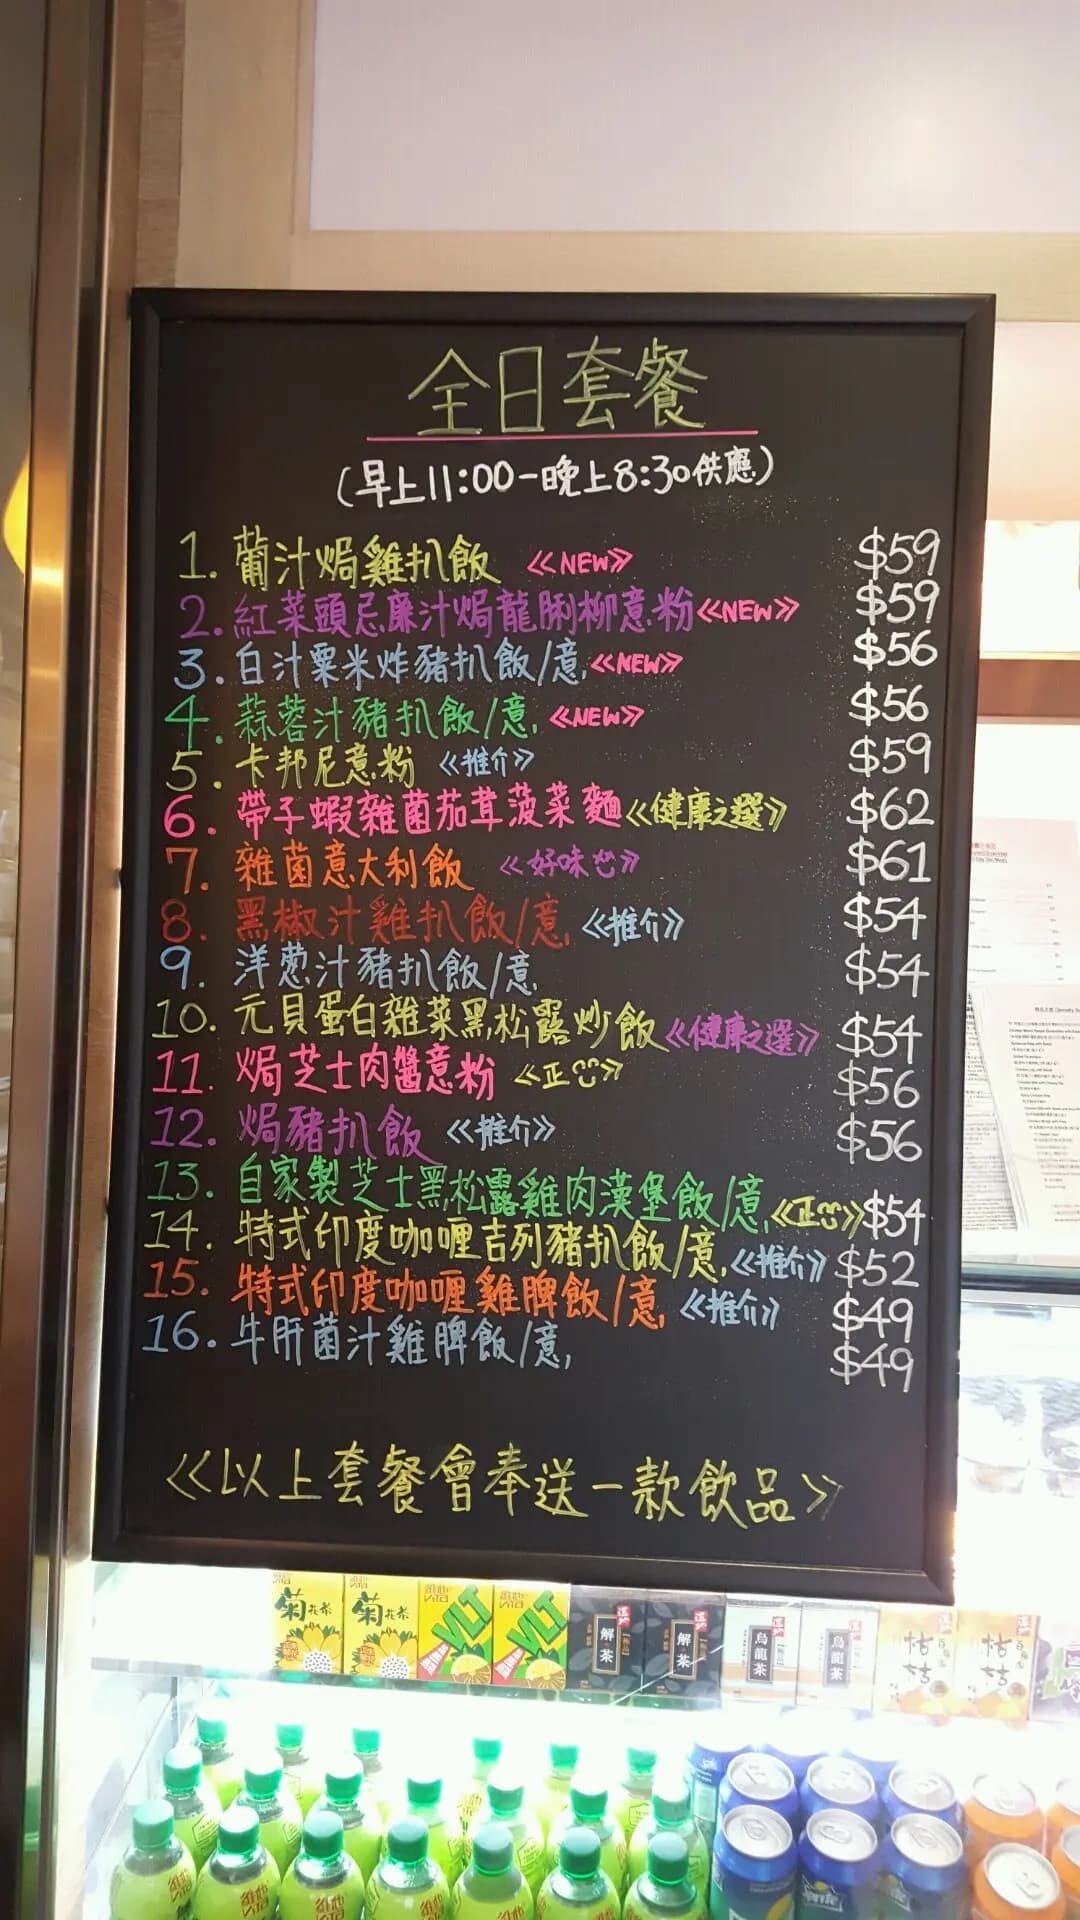 全日套餐
(早上11:00-晚上8:30供應)
1. 葡汁焗雞扒飯 《NEW》 $59
2. 紅菜頭忌廉汁焗龍脷柳意粉《NEW》 $59
3. 白汁粟米炸豬扒飯/意.《NEW》 $56
4. 蒜蓉汁豬扒飯/意. 《NEW》 $56
5. 卡邦尼意粉 《推介》 $59
6. 帶子蝦雜菌茄茸菠菜麵《健康之選》 $62
7. 雜菌意大利飯 《好味》 $61
8. 黑椒汁雞扒飯/意. 《推介》 $54
9. 洋蔥汁豬扒飯/意. $54
10. 元貝蛋白雜菜黑松露炒飯《健康之選》 $54
11. 焗芝士肉醬意粉 《正》 $56
12. 焗豬扒飯 《推介》 $56
13. 自家製芝士黑松露雞肉漢堡飯/意.《正》 $54
14. 特式印度咖喱吉列豬扒飯/意.《推介》 $52
15. 特式印度咖喱雞脾飯/意. 《推介》 $49
16. 牛肝菌汁雞脾飯/意. $49
《以上套餐會奉送一款飲品》
菊花茶 菊花茶 維他 VLT 維他 VLT 道地 解茶 道地 解茶 道地 烏龍茶 道地 烏龍茶
維他 維他 維他 維他 Sprite Sprite